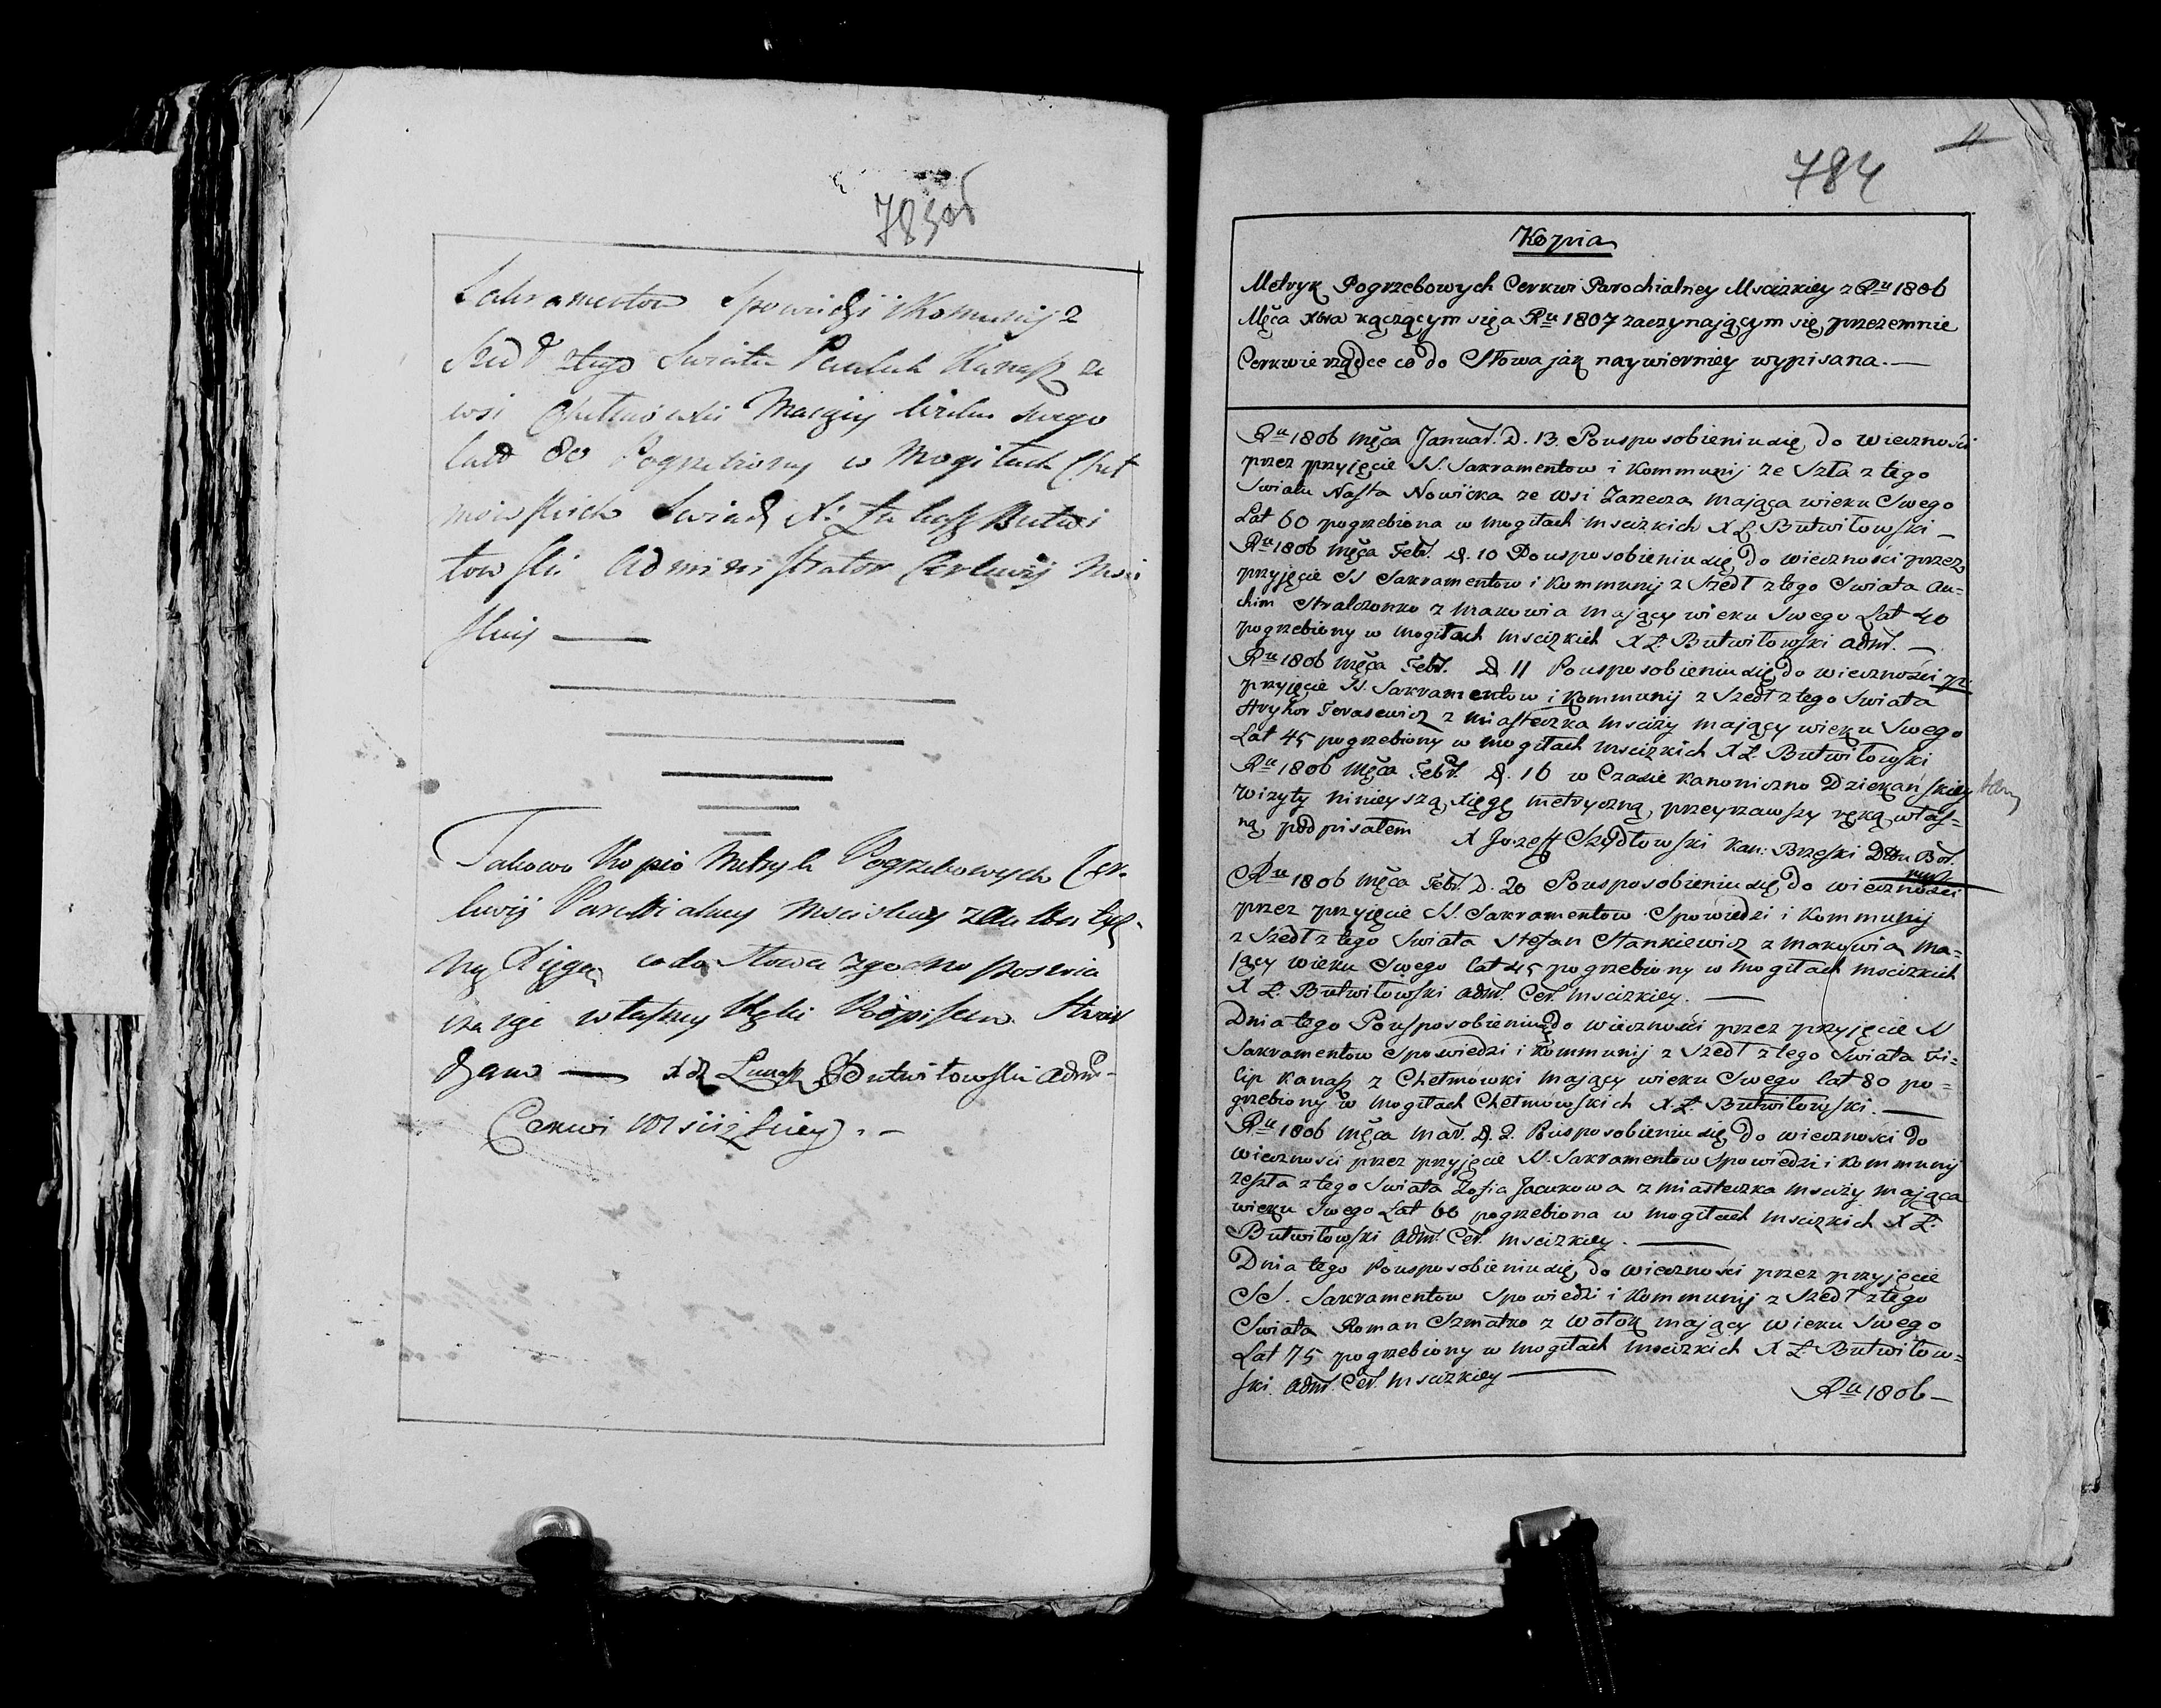 783об
Sakramentow Spowiedzi i Komunij z
Szedł ztego Swiata Pauluk Kanasz ze
wsi Chełmowki Maiąciy wieku swego
Lat 80 Pogrzebiony w Mogiłach Cheł
mowskich Swiadż X: Łukasz Butwi
łowski Administrator Cerkwij Msci
skiey
Takowo Kopio Metryk Pogrzebowych Cer-
kwij Parochialney Msciskiey
ną Xięgą co do Słowa zgodno
własney Ręki Podpisem Stwier
dzam X Łukasz Butwiłowski Adm:
Cerkwi Msciżskiey
784
11
Kopia
Metryk Pogrzebowych Cerkwi Parochialney Mscizkiey z Ru 1806
Męca Xbra kączącym się a Ru 1807 zaczynającym się przezemnie
Cerkwie rządce co do Słowa jak naywierniey wypisana.
Ru 1806 Męca Januar. D. 13. Pousposobieniu się do wieczności
przez przyjęcie SS. Sakramentow i Kommunij ze Szła z tego
Swiatu Nasta Nowicka ze wsi Zarecza mająca wieku Swego
Lat 60 pogrzebiona w mogiłach mscizkich X Ł. Butwiłowski
Ru 1806 Męca Febr. D. 10 Pousposobieniu się do wieczności przez
przyjęcie SS Sakramentow i Kommunij z Szedł z tego Swiata Au-
chim Stralczonko z Makowia mający wieku Swego Lat 40
pogrzebiony w mogiłach mscizkich X Ł. Butwiłowski adm.
Ru 1806 Męca Febr. D 11 Pousposobieniu się do wieczności pr.
przyjęcie SS. Sakramentow i Kommunij z Szedł z tego Swiata
Hryhor Terasewicz z Miasteczka Msciży mający wieku Swego
Lat 45 pogrzebiony w mogiłach mscizkich X Ł. Butwiłowski
Ru 1806 Męca Febr. D. 16 w Czasie Kanoniczno Dziekańskiey
Wizyty ninieyszą xięgę metryczną, przeyrzawszy ręką włas-
ną podpisałem X Jozeff Szydłowski Kan: Brzeski Dzn Bor.
Ru 1806 Męca Febr. D. 20 Pousposobieniu się do wieczności
przez przyjęcie SS. Sakramentow Spowiedzi i Kommunij
z Szedł z tego Swiata Stefan Stankiewicz z Makowia ma-
jący wieku Swego lat 45 pogrzebiony w mogiłach mscizkich
X Ł. Butwiłowski adm. Cer. mscizkiey.
Dnia tego Pousposobieniu się do wieczności przez przyjęcie SS
Sakramentow Spowiedzi i Kommunij z Szedł z tego Swiata Fi-
lip Kanasz z Chełmowki mający wieku Swego lat 80 po-
grzebiony w mogiłach Chełmowskich X Ł. Butwiłowski.
Ru 1806 Męca Mar. D. 2. Pousposobieniu się do wieczności do
wieczności przez przyjęcie SS. Sakramentow Spowiedzi i Kommunij
zeszła z tego Swiata Zofia Jacukowa z miasteczka msciży mająca
wieku Swego Lat 66 pogrzebiona w mogiłach mscizkich X Ł.
Butwiłowski adm. Cer. mscizkiey.
Dnia tego Pousposobieniu się do wieczności przez przyjęcie
SS. Sakramentow Spowiedzi i Kommunij z Szedł z tego
Swiata Roman Szmatko z Wołok mający wieku Swego
Lat 75 pogrzebiony w mogiłach mscizkich X Ł Butwiłow-
ski adm. Cer. mscizkiey
Ru 1806